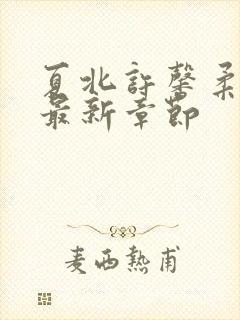 夏北許馨柔
最新章節
麦西熱甫